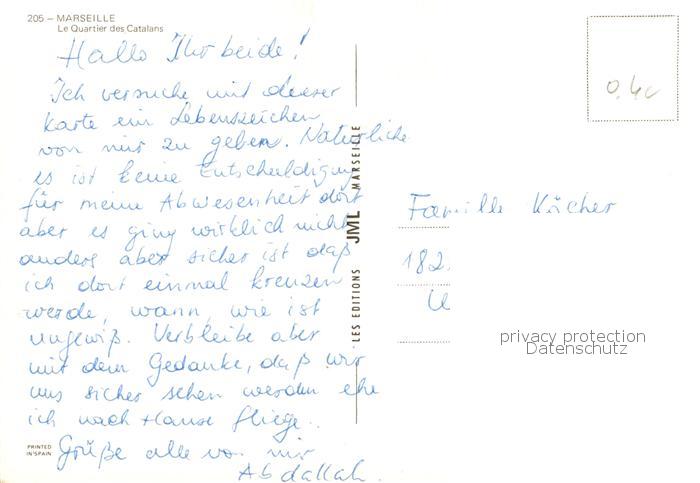 205 – MARSEILLE
Le Quartier des Catalans
Hallo Ihr beide!
Ich versuche mit dieser
Karte ein Lebenszeichen
von mir zu geben. Natürliche
es ist keine Entschuldigung
für meine Abwesenheit dort
aber es ging wirklich nicht
anders aber sicher ist daß
ich dort einmal kreuzen
werde, wann, wie ist
ungewiß. Verbleibe aber
mit dem Gedanke, daß wir
uns sicher sehen werden ehe
ich nach Hause fliege..
Grüße alle von mir
Abdallah.
PRINTED
IN SPAIN
LES EDITIONS JML MARSEILLE
0,40
Familie Köcher
182
U
privacy protection
Datenschutz